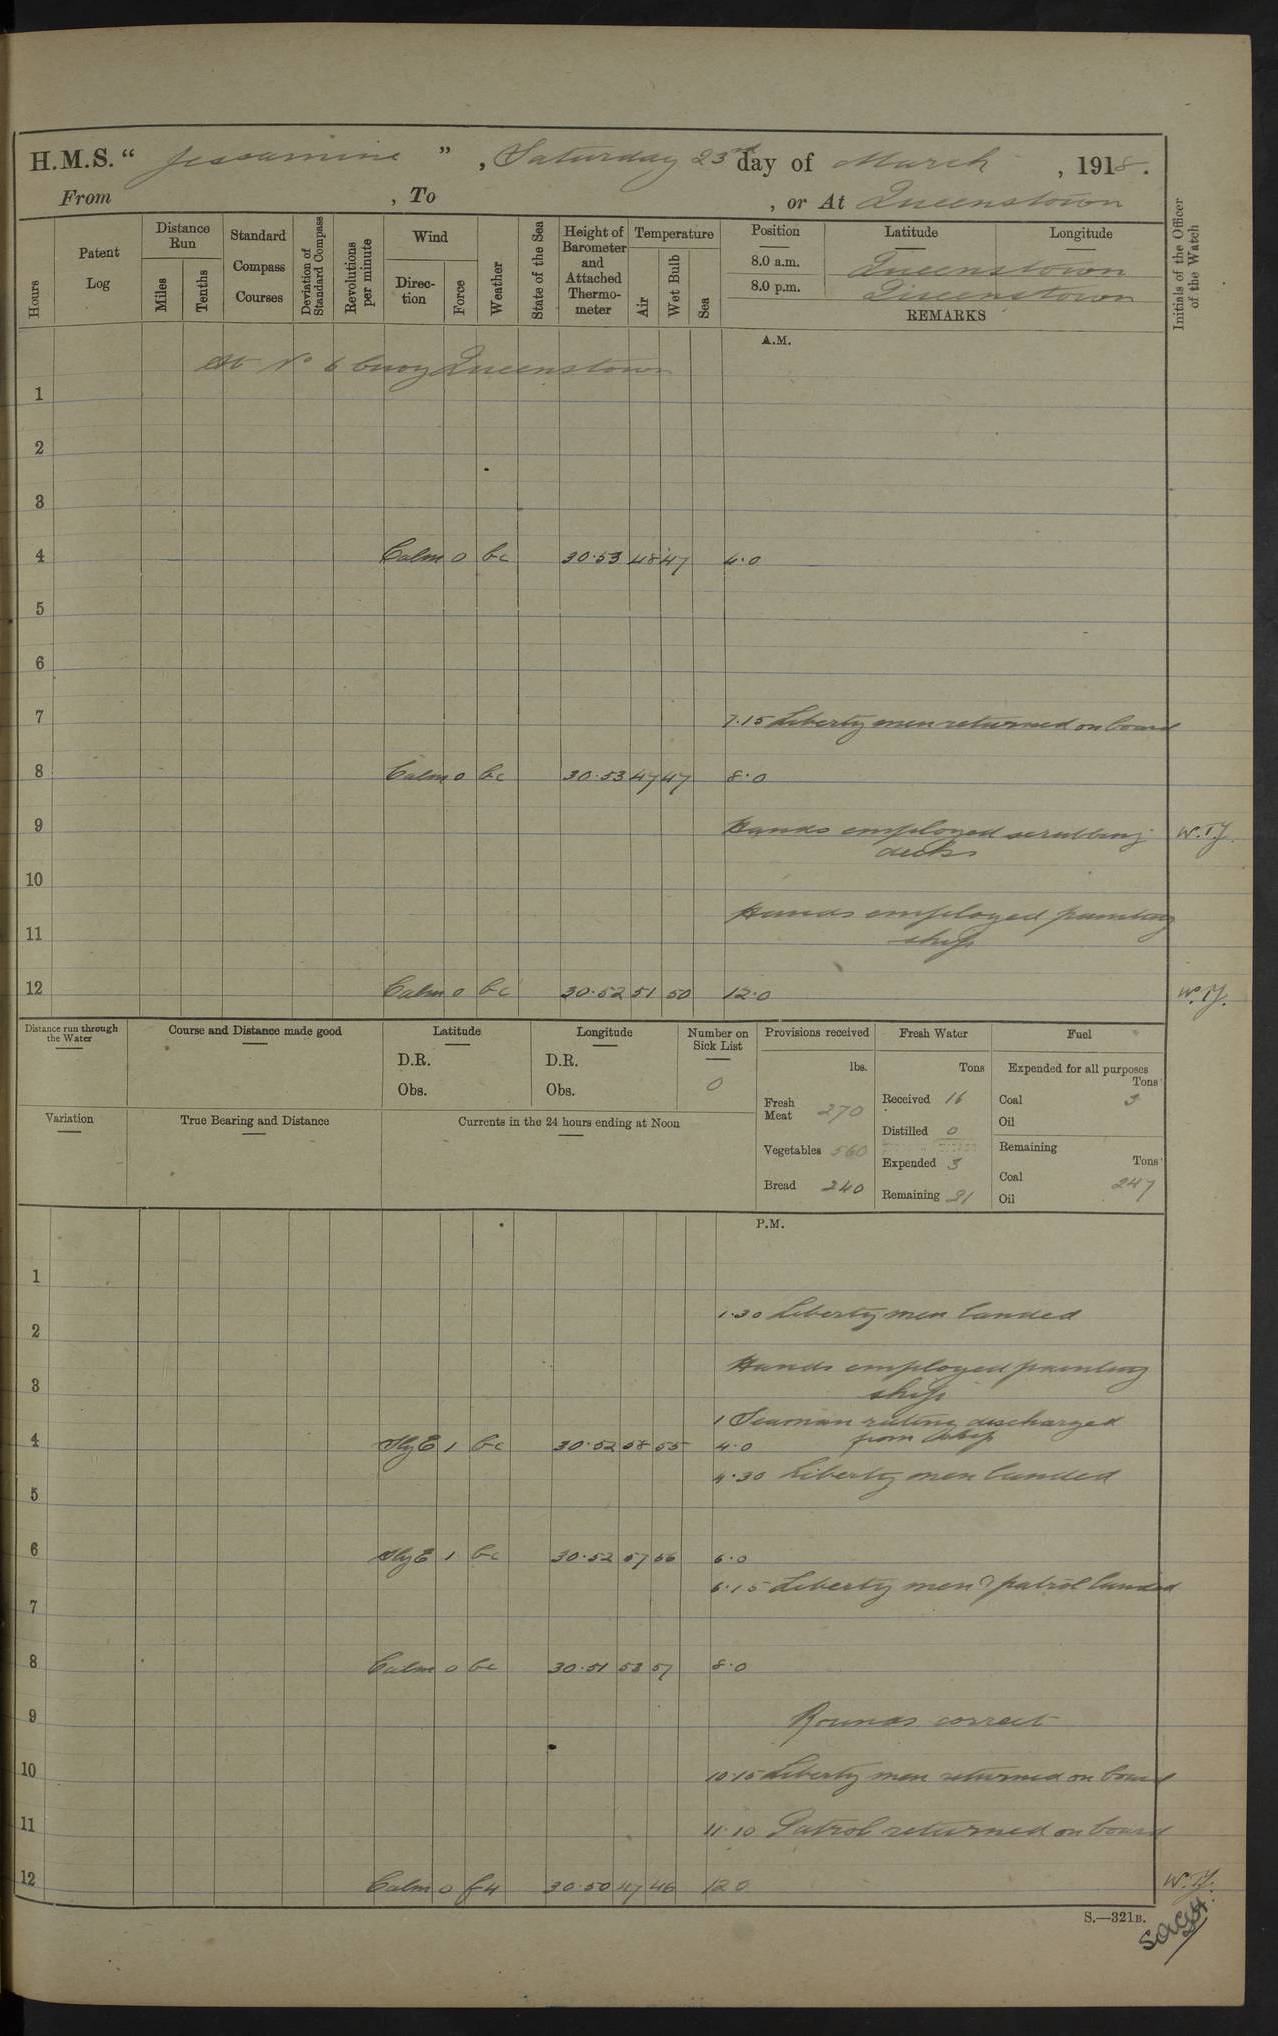 H.M.S. " Jessamine " , Saturday 23rd day of March , 1918.
From , To , or At Queenstown
Hours
Patent Log
Distance Run
Miles
Tenths
Standard Compass Courses
Deviation of Standard Compass
Revolutions per minute
Wind
Direction
Force
Weather
State of the Sea
Height of Barometer and Attached Thermometer
Temperature
Air
Wet Bulb
Sea
Position Latitude Longitude
8.0 a.m. Queenstown
8.0 p.m. Queenstown
REMARKS
Initials of the Officer of the Watch
A.M.
At No 6 buoy Queenstown
1
2
3
4 Calm 0 bc 30.53 48 47 4.0
5
6
7 7.15 Liberty men returned on board
8 Calm 0 bc 30.53 47 47 8.0
9 Hands employed scrubbing W.T.J.
decks
10
Hands employed painting
11 ship
12 Calm 0 bc 30.52 51 50 12.0
Distance run through the Water
Course and Distance made good
Latitude
D.R.
Obs.
Longitude
D.R.
Obs.
Number on Sick List
0
Provisions received
lbs.
Fresh Meat 270
Vegetables 560
Bread 240
Fresh Water
Tons
Received 16
Distilled 0
Expended 3
Remaining
Fuel
Expended for all purposes
Tons
Coal 3
Oil
Remaining
Tons
Coal 247
Oil
Variation
True Bearing and Distance
Currents in the 24 hours ending at Noon
P.M.
1
1.30 Liberty men landed
2
Hands employed painting
3 ship
1 Seaman rating discharged
from ship
4 SlyE 1 bc 30.52 58 55 4.0
4.30 Liberty men landed
5
6 SlyE 1 bc 30.52 57 56 6.0
6.15 Liberty men & patrol landed
7
8 Calm 0 bc 30.51 53 51 8.0
9 Rounds correct
10 10.15 Liberty men returned on board
11 11.10 Patrol returned on board
12 Calm 0 30.50 47 46 12 0
S.—321B.